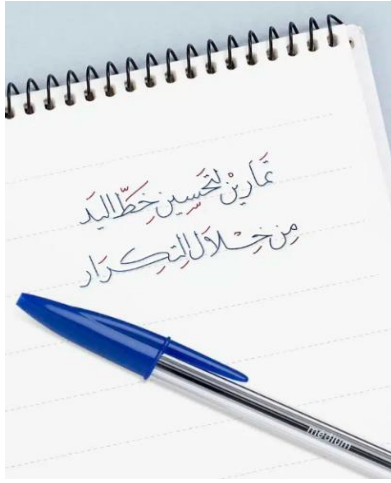 تَمَارِيْن لتَحَسِين خَطّ اليَد
مِن خِلَال التِكرَار
medium